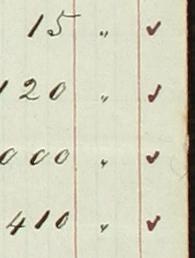 15 " ✓
120 " ✓
000 " ✓
410 " ✓